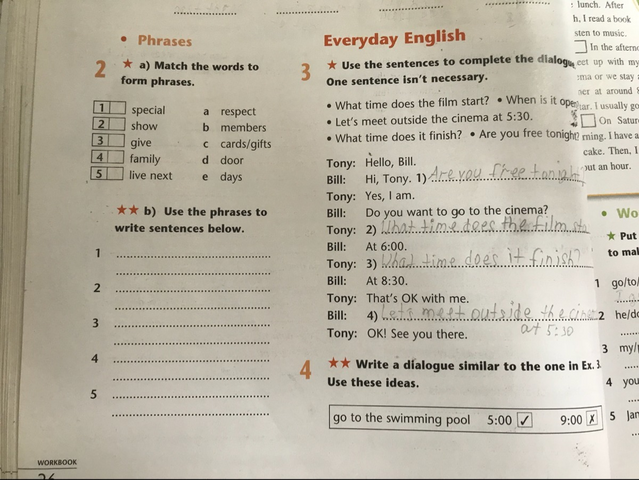 lunch. After
h, I read a book
sten to music.
In the afterno
eet up with my
ma or we stay
ner at around 8
I usually go
On Satur
rning. I have a
cake. Then, I
out an hour.
• Phrases
2 ★ a) Match the words to
form phrases.
1 special a respect
2 show b members
3 give c cards/gifts
4 family d door
5 live next e days
★★ b) Use the phrases to
write sentences below.
1
2
3
4
5
WORKBOOK
Everyday English
3 ★ Use the sentences to complete the dialogue
One sentence isn't necessary.
• What time does the film start? • When is it ope
• Let's meet outside the cinema at 5:30.
• What time does it finish? • Are you free tonight?
Tony: Hello, Bill.
Bill: Hi, Tony. 1) Are you free tonight
Tony: Yes, I am.
Bill: Do you want to go to the cinema?
Tony: 2) What time does the film sta
Bill: At 6:00.
Tony: 3) What time does it finish?
Bill: At 8:30.
Tony: That's OK with me.
Bill: 4) Let's meet outside the cine
at 5:30
Tony: OK! See you there.
4 ★★ Write a dialogue similar to the one in Ex. 3.
Use these ideas.
go to the swimming pool 5:00 ✓ 9:00 ✗
• Wo
★ Put
to mal
1 go/to/
2 he/do
3 my/
4 you
5 Jan